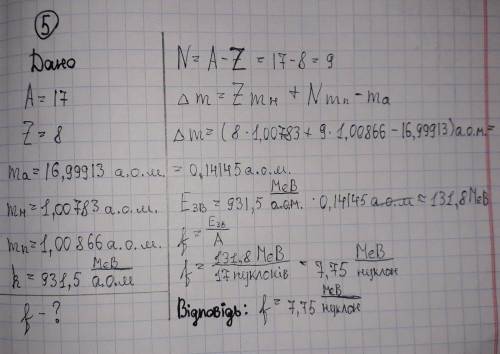 5
Дано
A = 17
Z = 8
mа = 16,99913 а.о.м.
mн = 1,00783 а.о.м.
mп = 1,00866 а.о.м.
k = 931,5 МеВ/а.о.м
f - ?
N = A - Z = 17 - 8 = 9
Δm = Z mн + N mп - mа
Δm = (8·1,00783 + 9·1,00866 - 16,99913) а.о.м. =
= 0,14145 а.о.м.
Eзв = 931,5 МеВ/а.о.м. · 0,14145 а.о.м ≈ 131,8 МеВ
f = Eзв/A
f = 131,8 МеВ/17 нуклонів = 7,75 МеВ/нуклон
Відповідь: f = 7,75 МеВ/нуклон